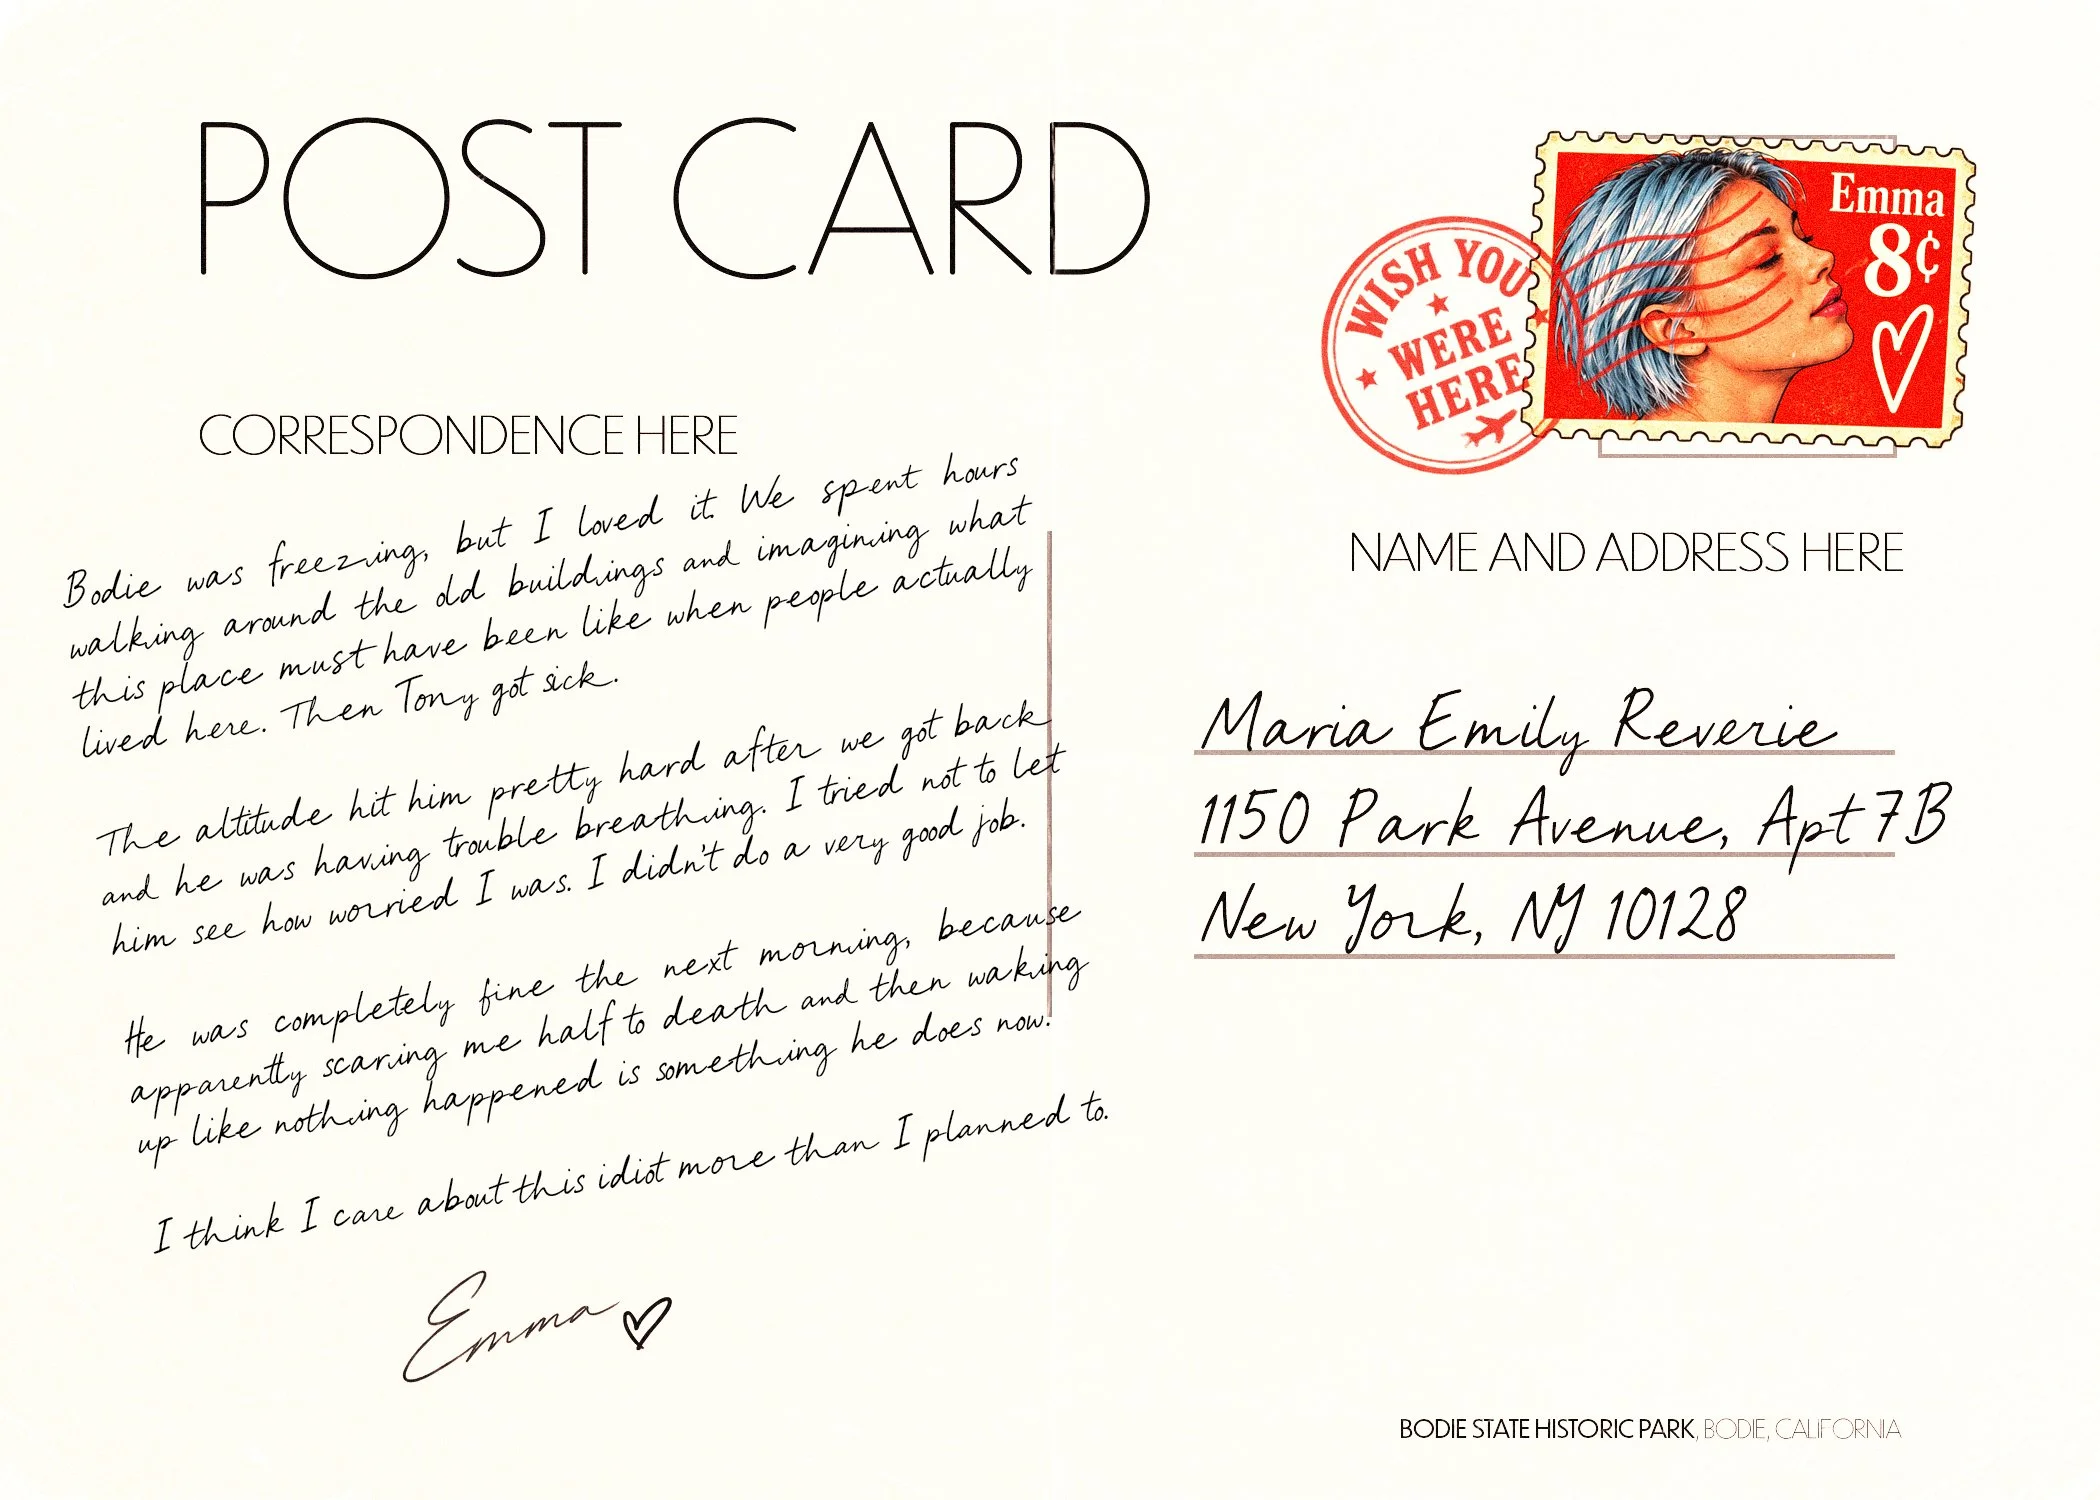 POST CARD
CORRESPONDENCE HERE
Bodie was freezing, but I loved it. We spent hours
walking around the old buildings and imagining what
this place must have been like when people actually
lived here. Then Tony got sick.
The altitude hit him pretty hard after we got back
and he was having trouble breathing. I tried not to let
him see how worried I was. I didn't do a very good job.
He was completely fine the next morning, because
apparently scaring me half to death and then waking
up like nothing happened is something he does now.
I think I care about this idiot more than I planned to.
Emma
WISH YOU
WERE
HERE
Emma
8¢
NAME AND ADDRESS HERE
Maria Emily Reverie
1150 Park Avenue, Apt 7B
New York, NY 10128
BODIE STATE HISTORIC PARK, BODIE, CALIFORNIA